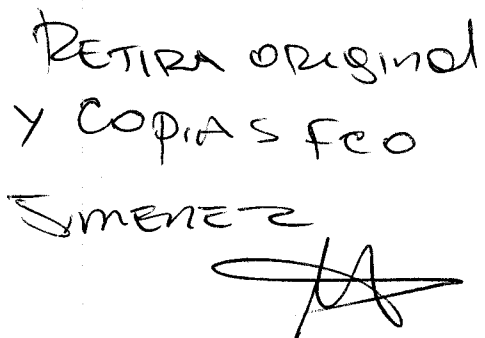 RETIRA ORIGINAL
Y COPIAS FCO
JIMENEZ